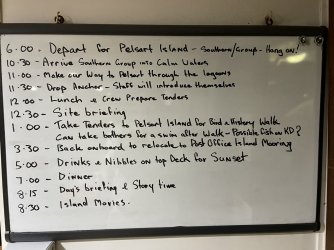 6.00 - Depart for Pelsart Island - Southern/Group - Hang on!
10.30 - Arrive Southern Group into Calm Waters
11.00 - Make our Way to Pelsart through the lagoons
11.30 - Drop Anchor - Staff will introduce themselves
12.00 - Lunch & Crew Prepare Tenders
12.30 - Site briefing
1.00 - Take Tenders to Pelsart Island for Bird & History Walk
Can take bathers for a swim after Walk - Possible fish on KD?
3.30 - Back onboard to relocate to Post Office Island Mooring
5.00 - Drinks & Nibbles on top Deck for Sunset
7.00 - Dinner
8.15 - Day's briefing & Story time
8.30 - Island Movies.